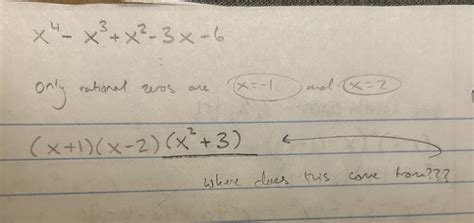 x⁴ - x³ + x² - 3x - 6
only rational zeros are x=-1 and x=2
(x+1)(x-2)(x²+3)
where does this come from???